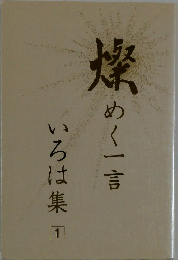 燦めく一言
いろは集
1